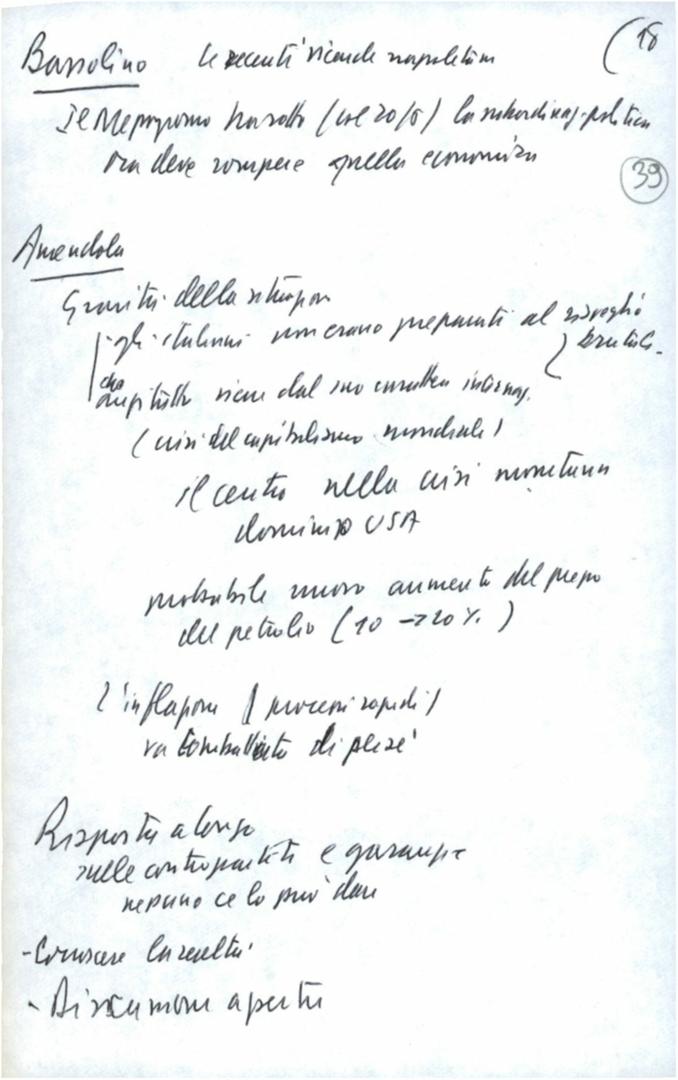 Bassolino le recenti vicende napoletane (18
Il Mezzogiorno ha rotto (col 20/6) la subordinaz. politica
ora deve rompere quella economica
39
Amendola
Gravità della situazione
gli italiani non erano preparati al risveglio
brutale.
che viene dal suo carattere internaz.
(crisi del capitalismo mondiale)
il centro nella crisi monetaria
dominio USA
probabile nuovo aumento del prezzo
del petrolio (10 → 20%.)
L'inflazione (processi rapidi)
va combattuta di per sé
Risposta a Longo
sulle contropartite e garanzie
nessuno ce lo può dare
- Conoscere la realtà
- Discussione aperta